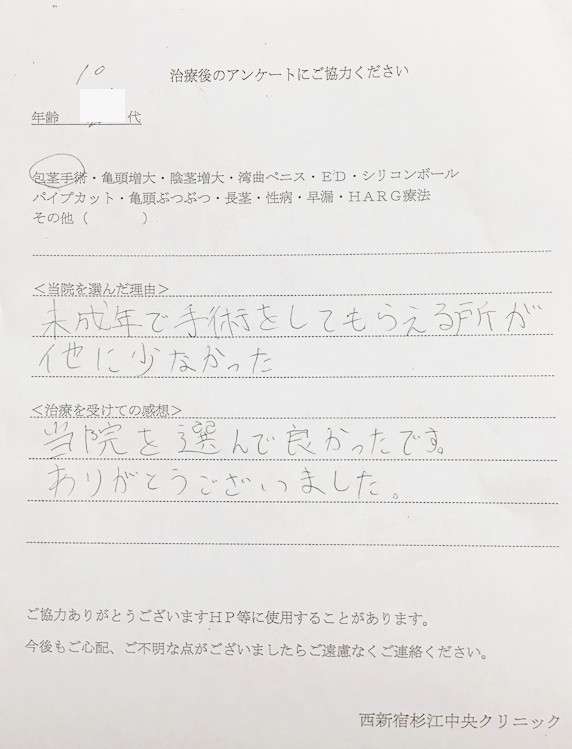 治療後のアンケートにご協力ください
10
年齢 代
包茎手術・亀頭増大・陰茎増大・湾曲ペニス・ED・シリコンボール
パイプカット・亀頭ぶつぶつ・長茎・性病・早漏・HARG療法
その他( )
<当院を選んだ理由>
未成年で手術をしてもらえる所が
他に少なかった
<治療を受けての感想>
当院を選んで良かったです。
ありがとうございました。
ご協力ありがとうございますHP等に使用することがあります。
今後もご心配、ご不明な点がございましたらご遠慮なくご連絡ください。
西新宿杉江中央クリニック